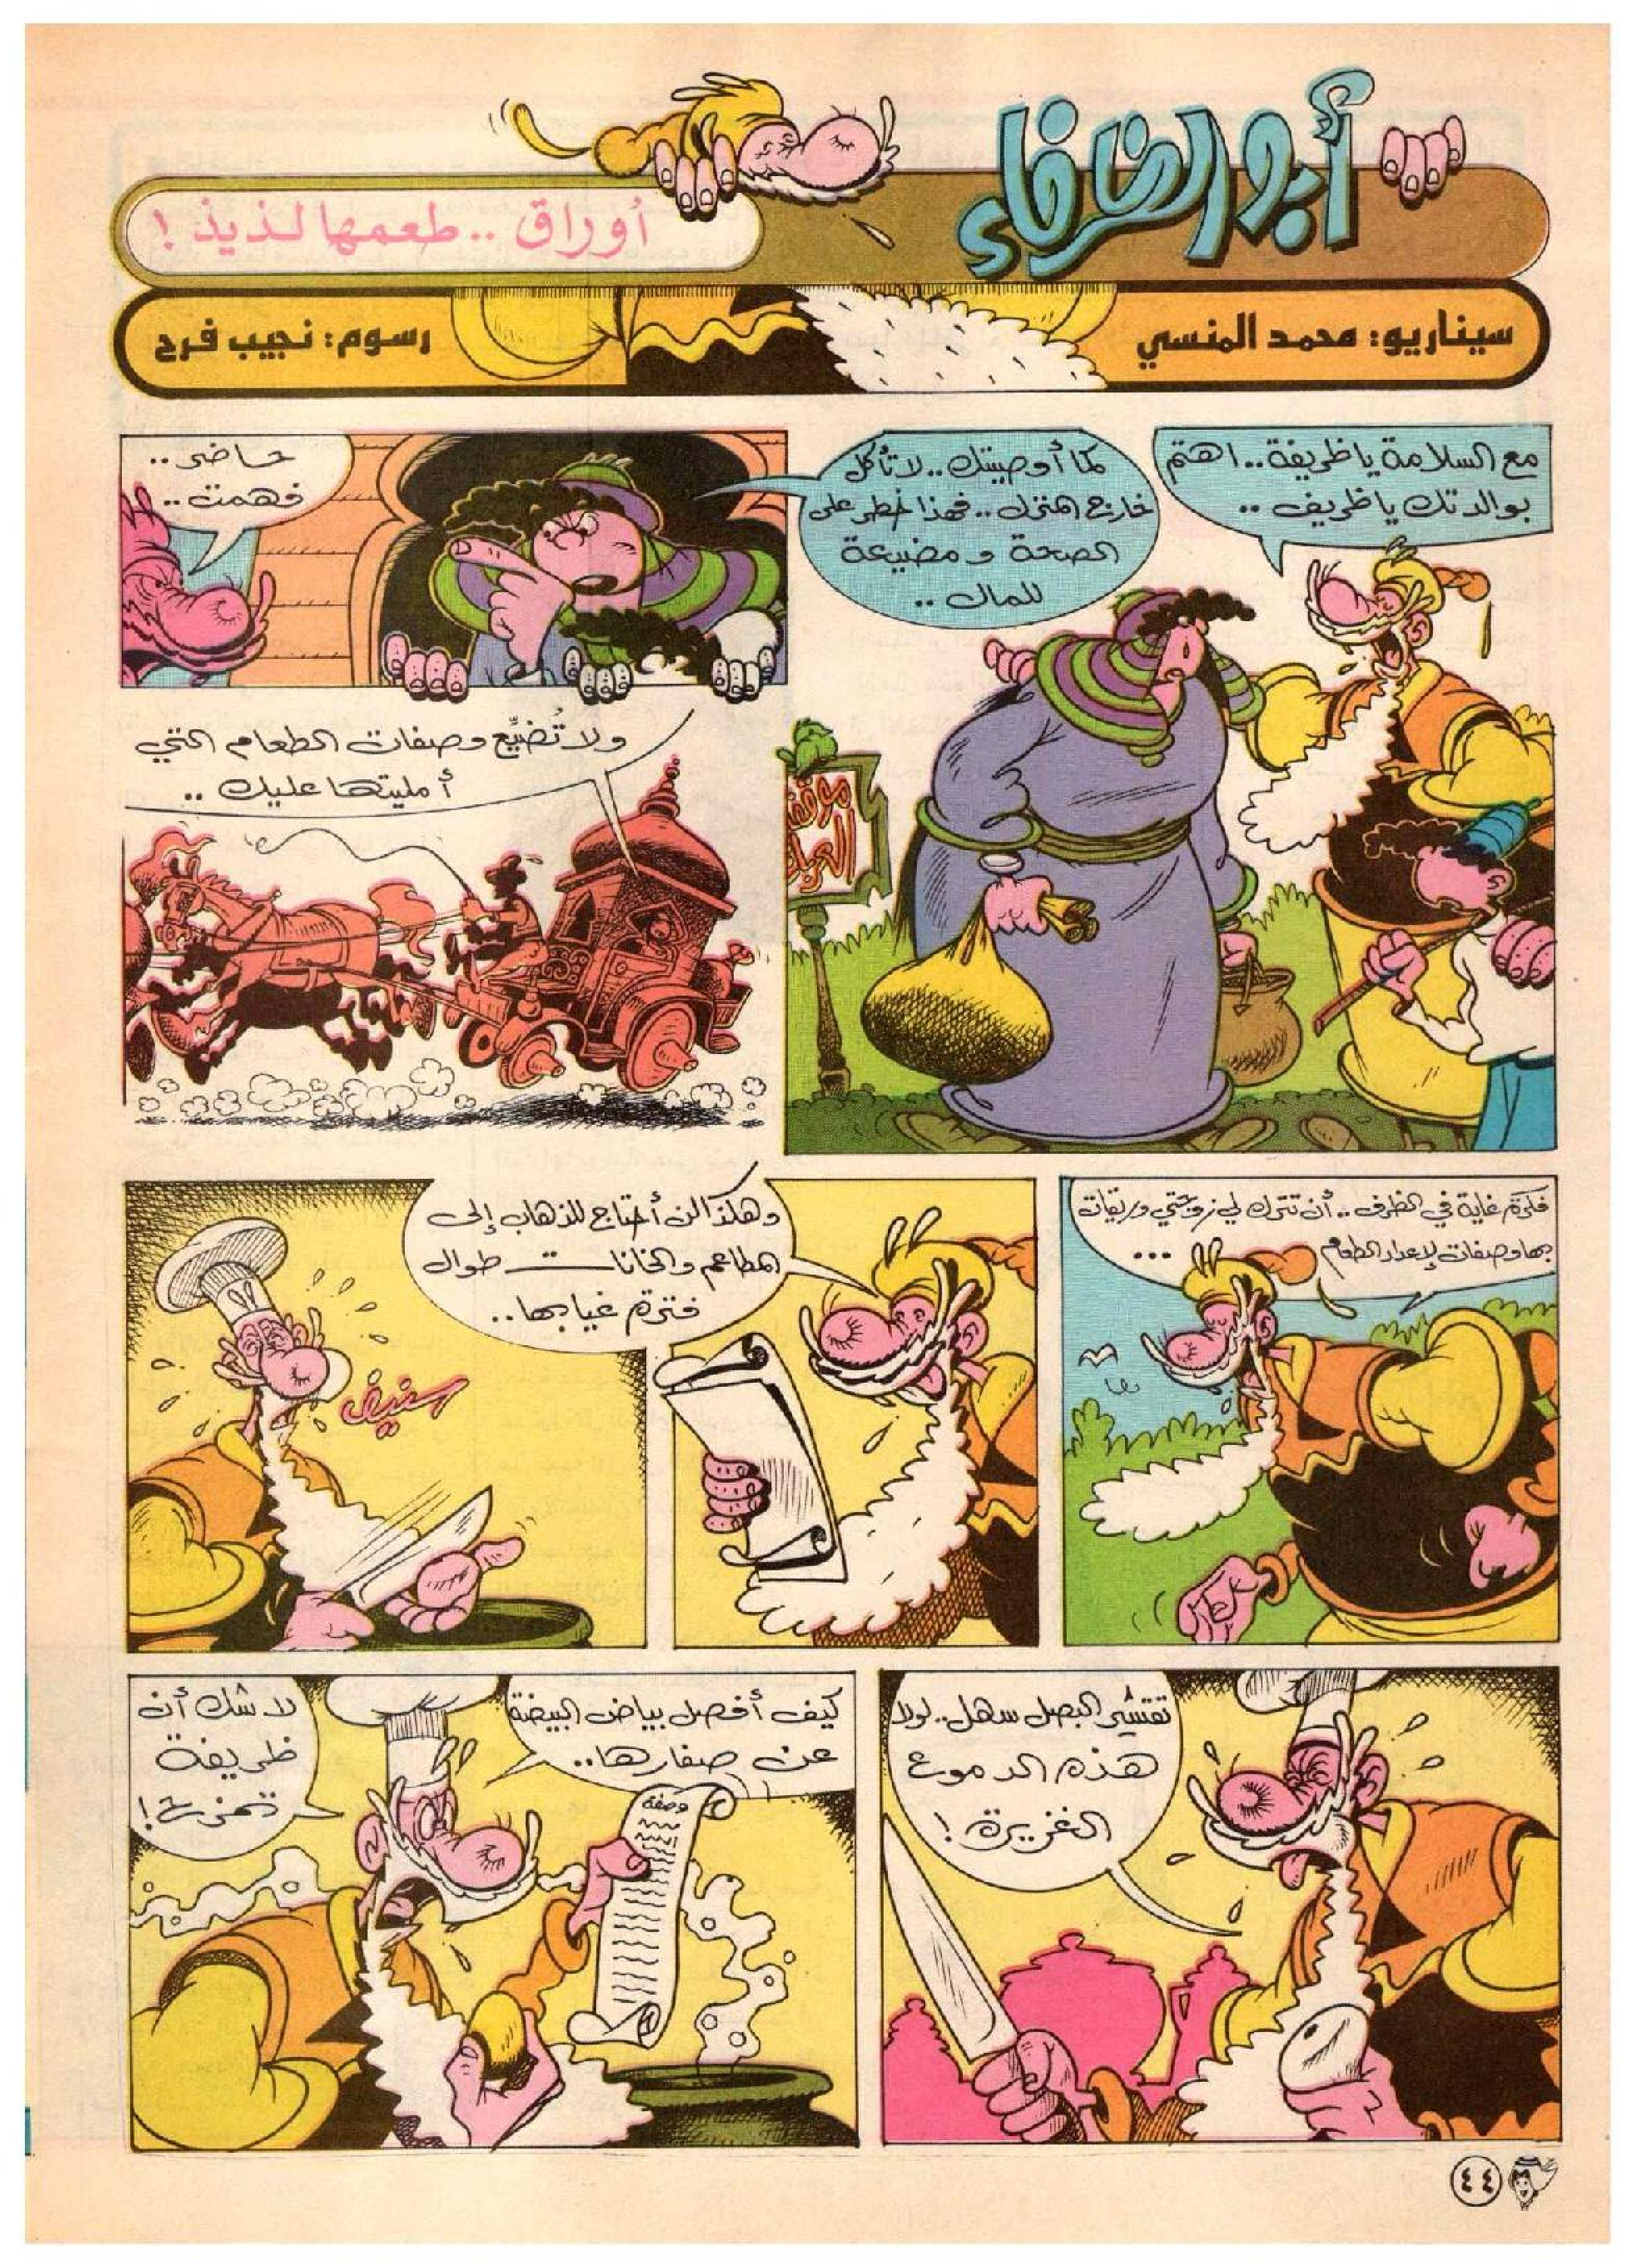 أبو الظرفاء
أوراق .. طعمها لذيذ !
سيناريو: محمد المنسي
رسوم: نجيب فرح
مع السلامة يا ظريفة .. اهتم
بوالدتك يا ظريف ..
كما أوصيتك .. لا تأكل
خارج المنزل .. فهذا خطر على
الصحة ومضيعة
للمال ..
موقف
العربات
حاضر ..
فهمت ..
ولا تُضيِّع وصفات الطعام التي
أمليتها عليك ..
فكرة غاية في الظرف .. أن تترك لي زوجتي وريقات
بها وصفات لإعداد الطعام ...
وهكذا لن أحتاج للذهاب إلى
المطاعم والخانات طوال
فترة غيابها ..
سنيف
تقشير البصل سهل .. لولا
هذه الدموع
الغزيرة !
كيف أفصل بياض البيضة
عن صفارها ..
وصفة
لا شك أن
ظريفة
تمزح !
٤٤